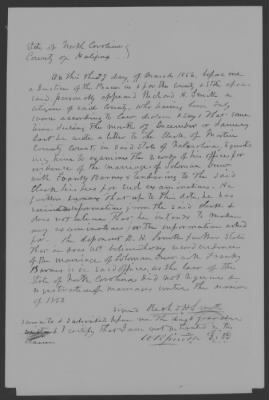 State of North Carolina
County of Halifax
On this the 27 day of March 1856 before me
a Justice of the Peace in & for the County & State afore
said, personally appeared Richard H. Smith a
citizen of said County, who having been duly
sworn according to law declares & says that some
time during the month of December or January
last he wrote a letter to the Clerk of Martin
County Court, in said State of N Carolina, requesting
him to examine the records of his office for
evidence of the marriage of Solomon
with Franky Barnes & tendering to the said
Clerk his fees for such examination. He
further swears that up to this date, he has
received no information from the said Clerk &
does not believe that he intends to make
any examination for the information asked
for. The deponent R. H. Smith further states
that he does not believe any record evidence
of the marriage of Solomon with Franky
Barnes is in said office, as the law of the
State of North Carolina did not require a
registration of marriages until the session
of 1850
signed Rich H Smith
Sworn to & subscribed before me the day & year above
& I certify that I am not interested in the